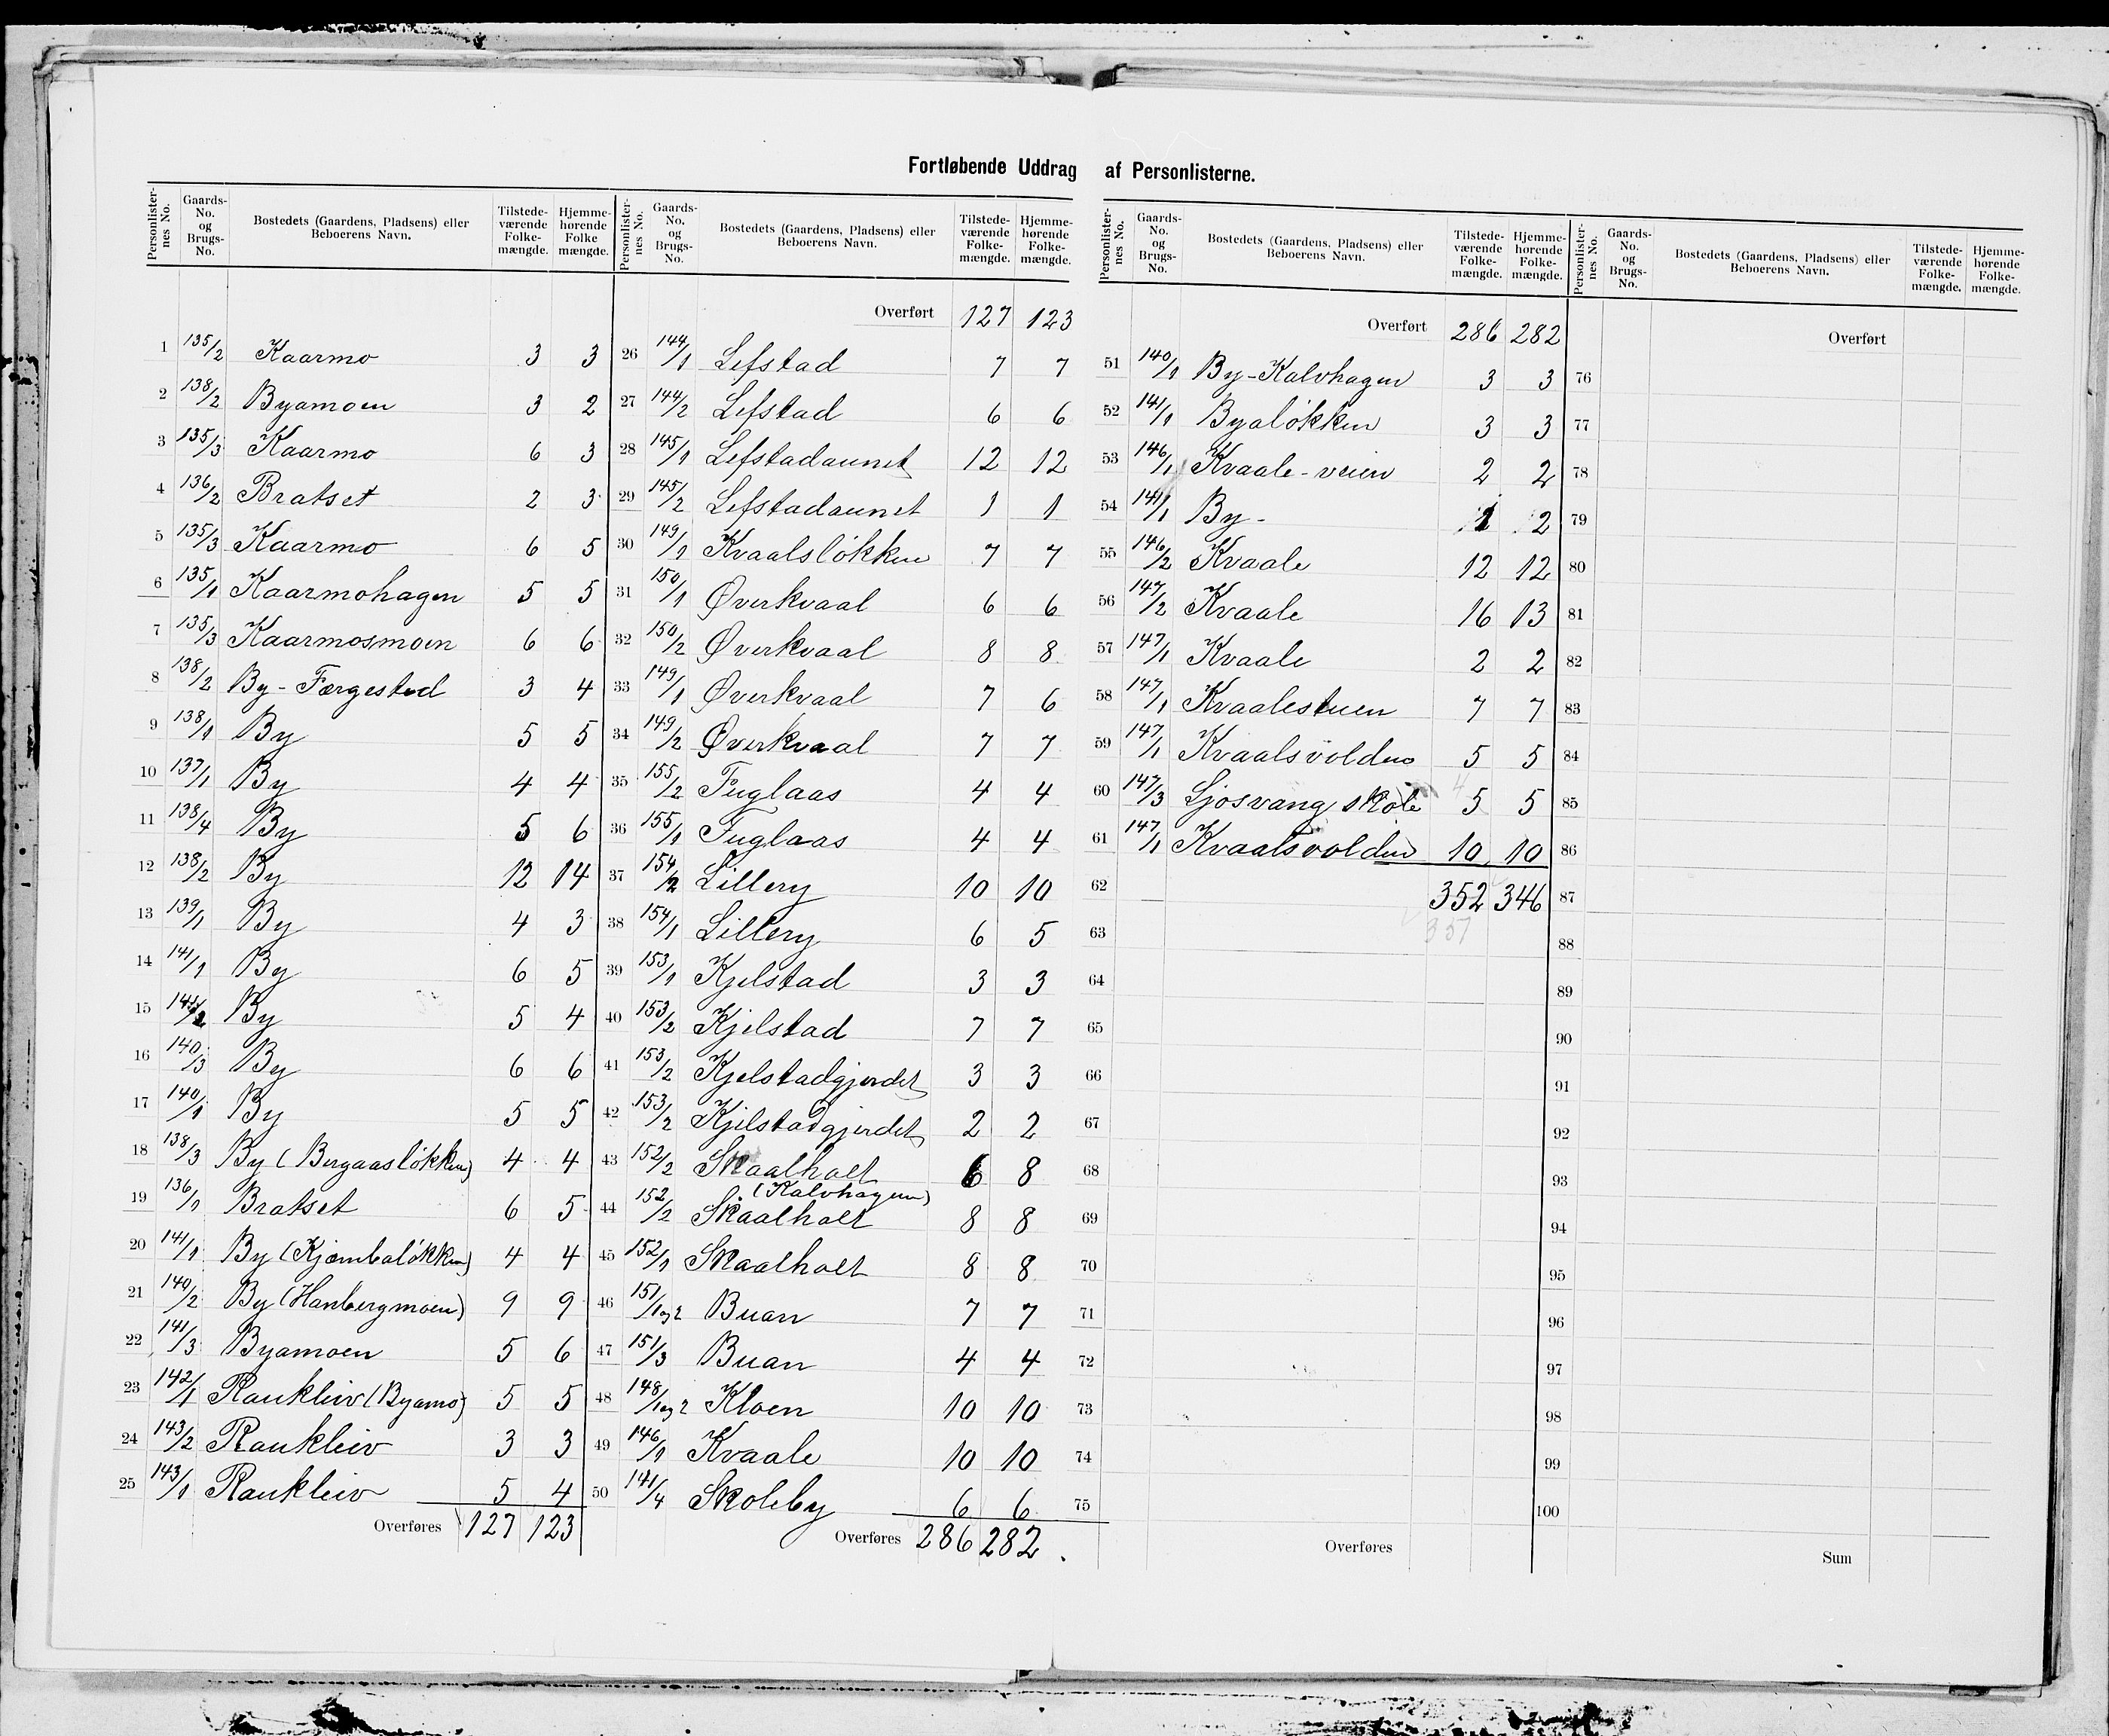 Fortløbende Uddrag af Personlisterne.
Personlister-nes No. Gaards-No. og Brugs-No. Bostedets (Gaardens, Pladsens) eller Beboerens Navn. Tilstede-værende Folke-mængde. Hjemme-hørende Folke mængde.
1 135/2 Kaarmo 3 3
2 138/2 Byamoen 3 2
3 135/3 Kaarmo 6 3
4 136/2 Bratset 2 3
5 135/3 Kaarmo 6 5
6 135/1 Kaarmohagen 5 5
7 135/3 Kaarmosmoen 6 6
8 138/2 By-Færgestad 3 4
9 138/1 By 5 5
10 137/1 By 4 4
11 138/4 By 5 6
12 138/2 By 12 14
13 139/1 By 4 3
14 141/1 By 6 5
15 141/2 By 5 4
16 140/3 By 6 6
17 140/1 By 5 5
18 138/3 By (Bergaasløkken) 4 4
19 136/1 Bratset 6 5
20 141/1 By (Kjæmbaløkken) 4 4
21 140/2 By (Hanbergmoen) 9 9
22 141/3 Byamoen 5 6
23 142/1 Raukleiv (Byamo) 5 5
24 143/2 Raukleiv 3 3
25 143/1 Raukleiv 5 4
Overføres 127 123
Personlister-nes No. Gaards-No. og Brugs-No. Bostedets (Gaardens, Pladsens) eller Beboerens Navn. Tilstede-værende Folke-mængde. Hjemme-hørende Folke-mængde.
Overført 127 123
26 144/1 Lefstad 7 7
27 144/2 Lefstad 6 6
28 145/1 Lefstadaunet 12 12
29 145/2 Lefstadaunet 1 1
30 149/1 Kvaalsløkken 7 7
31 150/1 Øverkvaal 6 6
32 150/2 Øverkvaal 8 8
33 149/1 Øverkvaal 7 6
34 149/2 Øverkvaal 7 7
35 155/2 Fuglaas 4 4
36 155/1 Fuglaas 4 4
37 154/2 Lillery 10 10
38 154/1 Lillery 6 5
39 153/1 Kjelstad 3 3
40 153/2 Kjelstad 7 7
41 153/2 Kjelstadgjerdet 3 3
42 153/2 Kjelstadgjerdet 2 2
43 152/2 Skaalholt 6 8
(Kalvhagen)
44 152/2 Skaalholt 8 8
45 152/1 Skaalholt 8 8
46 151/1 og 2 Buan 7 7
47 151/3 Buan 4 4
48 148/1 og 2 Kloen 10 10
49 146/1 Kvaale 10 10
50 141/4 Skoleby 6 6
Overføres 286 282
Personlister-nes No. Gaards-No. og Brugs-No. Bostedets (Gaardens, Pladsens) eller Beboerens Navn. Tilstede-værende Folke-mængde. Hjemme-hørende Folke-mængde.
Overført 286 282
51 140/1 By-Kalvhagen 3 3
52 141/1 Byaløkken 3 3
53 146/1 Kvaale-veien 2 2
54 141/1 By- 1 2
55 146/2 Kvaale 12 12
56 147/2 Kvaale 16 13
57 147/1 Kvaale 2 2
58 147/1 Kvaalestuen 7 7
59 147/1 Kvaalsvolden 5 5
4
60 147/3 Ljosvang skole 5 5
61 147/1 Kvaalsvolden 10 10
62 352 346
63 351
64
65
66
67
68
69
70
71
72
73
74
75
Overføres
Personlister-nes No. Gaards-No. og Brugs-No. Bostedets (Gaardens, Pladsens) eller Beboerens Navn. Tilstede-værende Folke-mængde. Hjemme-hørende Folke-mængde.
Overført
76
77
78
79
80
81
82
83
84
85
86
87
88
89
90
91
92
93
94
95
96
97
98
99
100
Sum